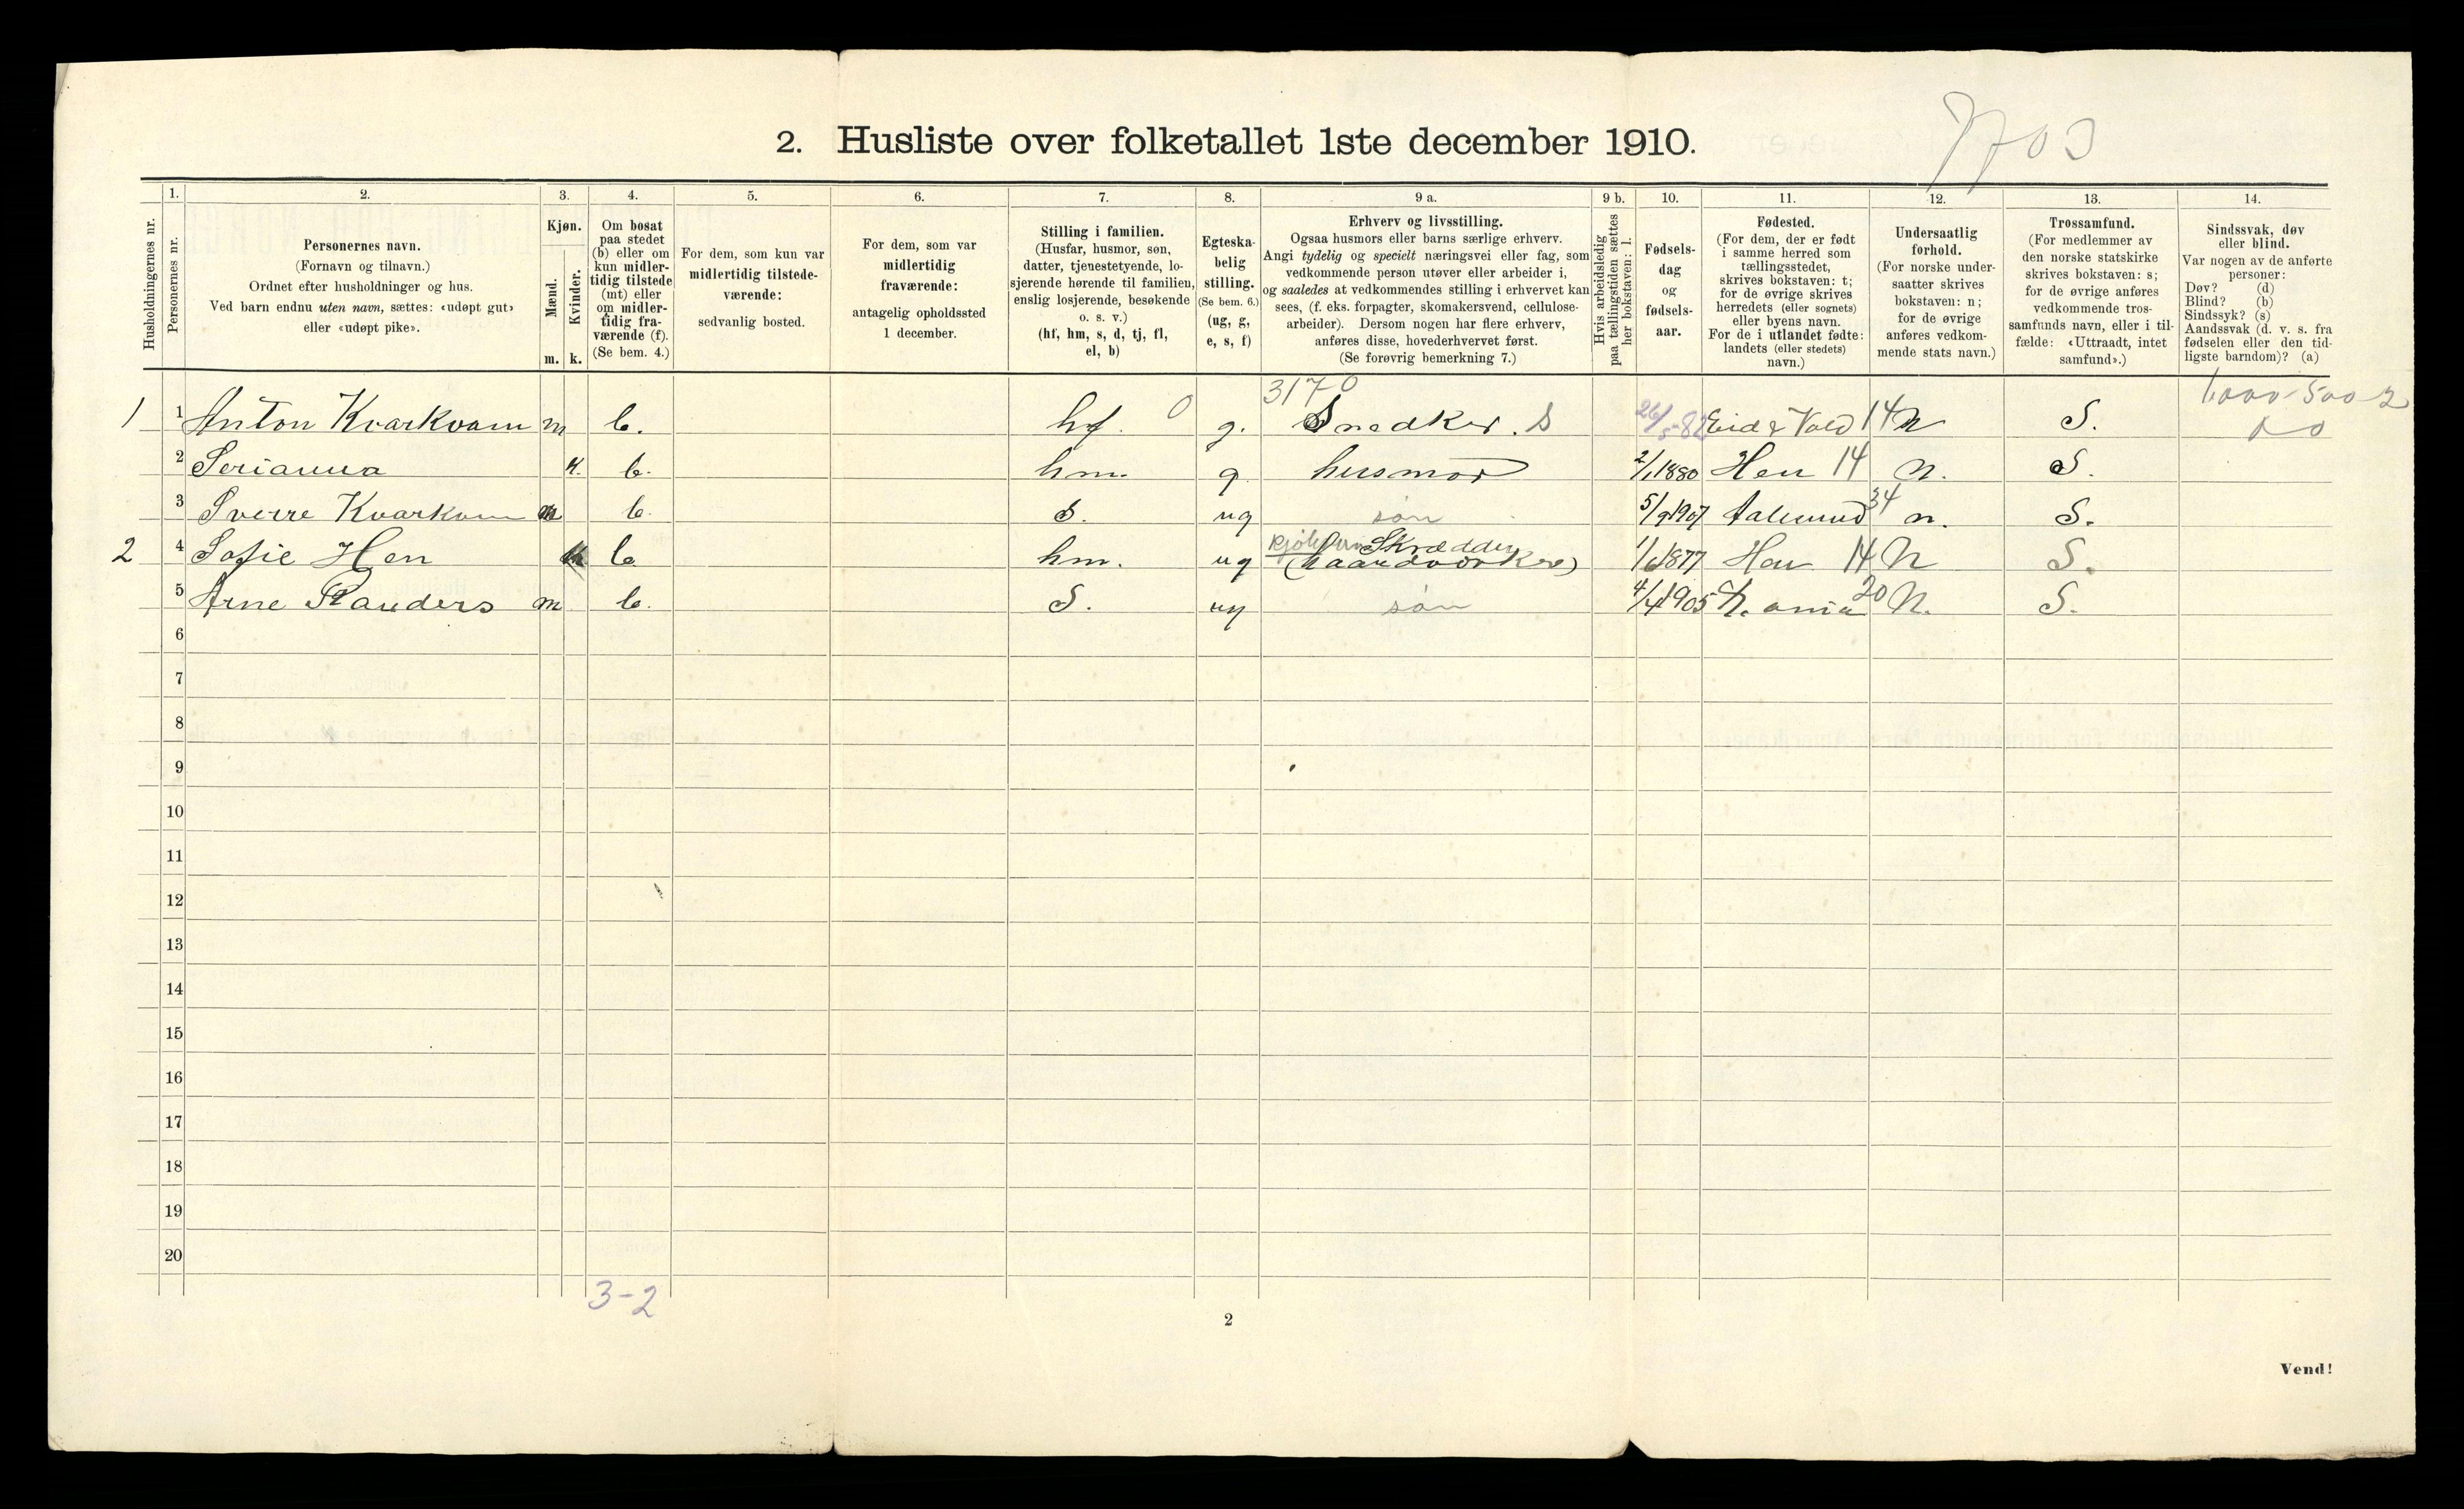 2. Husliste over folketallet 1ste december 1910.
1. 2. 3. 4. 5. 6. 7. 8. 9 a. 9 b. 10. 11. 12. 13. 14.
Husholdningernes nr.
Personernes nr.
Personernes navn.
(Fornavn og tilnavn.)
Ordnet efter husholdninger og hus.
Ved barn endnu uten navn, sættes: «udøpt gut»
eller «udøpt pike».
Kjøn.
Mænd.
m.
Kvinder.
k.
Om bosat
paa stedet
(b) eller om
kun midler-
tidig tilstede
(mt) eller
om midler-
tidig fra-
værende (f).
(Se bem. 4.)
For dem, som kun var
midlertidig tilstede-
værende:
sedvanlig bosted.
For dem, som var
midlertidig
fraværende:
antagelig opholdssted
1 december.
Stilling i familien.
(Husfar, husmor, søn,
datter, tjenestetyende, lo-
sjerende hørende til familien,
enslig losjerende, besøkende
o. s. v.)
(hf, hm, s, d, tj, fl,
el, b)
Egteska-
belig
stilling.
(Se bem. 6.)
(ug, g,
e, s, f)
Erhverv og livsstilling.
Ogsaa husmors eller barns særlige erhverv.
Angi tydelig og specielt næringsvei eller fag, som
vedkommende person utøver eller arbeider i,
og saaledes at vedkommendes stilling i erhvervet kan
sees, (f. eks. forpagter, skomakersvend, cellulose-
arbeider). Dersom nogen har flere erhverv,
anføres disse, hovederhvervet først.
(Se forøvrig bemerkning 7.)
Hvis arbeidsledig
paa tællingstiden sættes
her bokstaven: l.
Fødsels-
dag
og
fødsels-
aar.
Fødested.
(For dem, der er født
i samme herred som
tællingsstedet,
skrives bokstaven: t;
for de øvrige skrives
herredets (eller sognets)
eller byens navn.
For de i utlandet fødte:
landets (eller stedets)
navn.)
Undersaatlig
forhold.
(For norske under-
saatter skrives
bokstaven: n;
for de øvrige
anføres vedkom-
mende stats navn.)
Trossamfund.
(For medlemmer av
den norske statskirke
skrives bokstaven: s;
for de øvrige anføres
vedkommende tros-
samfunds navn, eller i til-
fælde: «Uttraadt, intet
samfund».)
Sindssvak, døv
eller blind.
Var nogen av de anførte
personer:
Døv? (d)
Blind? (b)
Sindssyk? (s)
Aandssvak (d. v. s. fra
fødselen eller den tid-
ligste barndom)? (a)
3170 1000-500-2
1 1 Anton Kvarkvam m b. hf. 0 g. Snedker. S 26/5-82 Eid & Vold 14 N S.
2 Serianna k. b. hm. g. husmor 2/1 1880 Hen 14 N. S.
3 Sverre Kvarkvam m b. S. ug søn 5/9 1907 Aalesund 34 n. S.
2 4 Sofie Hen k b. hm. ug Skrædder (haandværker) 1877 Hen 14 N S.
5 Arne Randers m b. S. ug søn 4/4 1905 Kr.ania 20 N. S.
6
7
8
9
10
11
12
13
14
15
16
17
18
19
20
3-2
2
Vend!